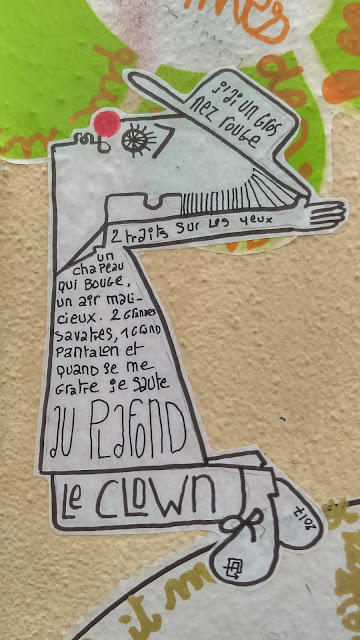 j'ai un gros
nez rouge
2 traits sur les yeux
un
chapeau
qui bouge,
un air mali-
cieux. 2 grandes
savates, 1 grand
pantalon et
quand je me
gratte je saute
au Plafond
Le CLOWN
2017